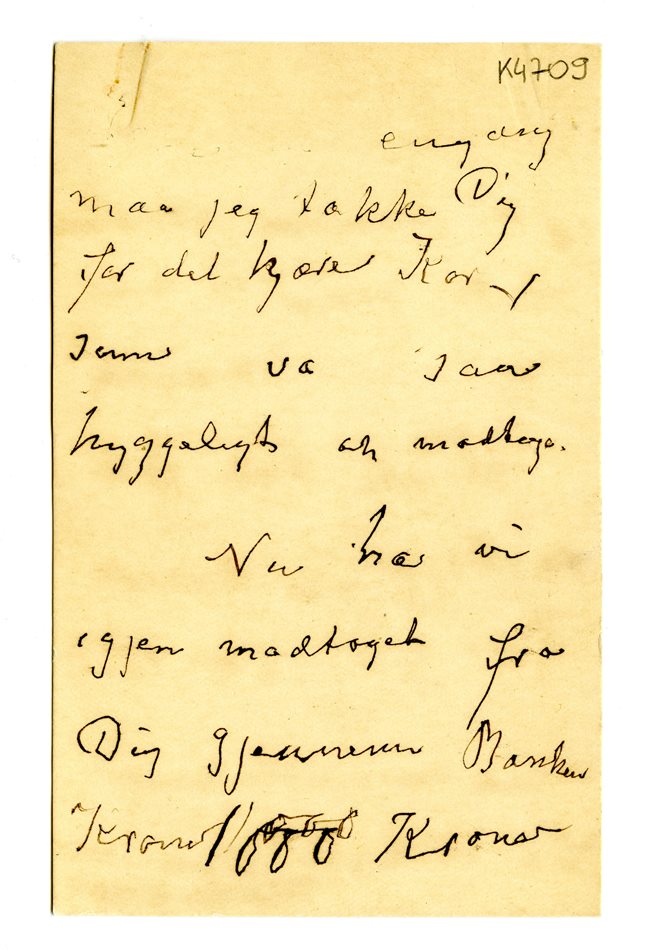 K4709
engang
maa jeg takke Dig
for det kjære Kort
som va saa
hyggeligt at modtage.
Nu har vi
igjen modtoget fra
Dig gjennem Banken
Kroner Kroner